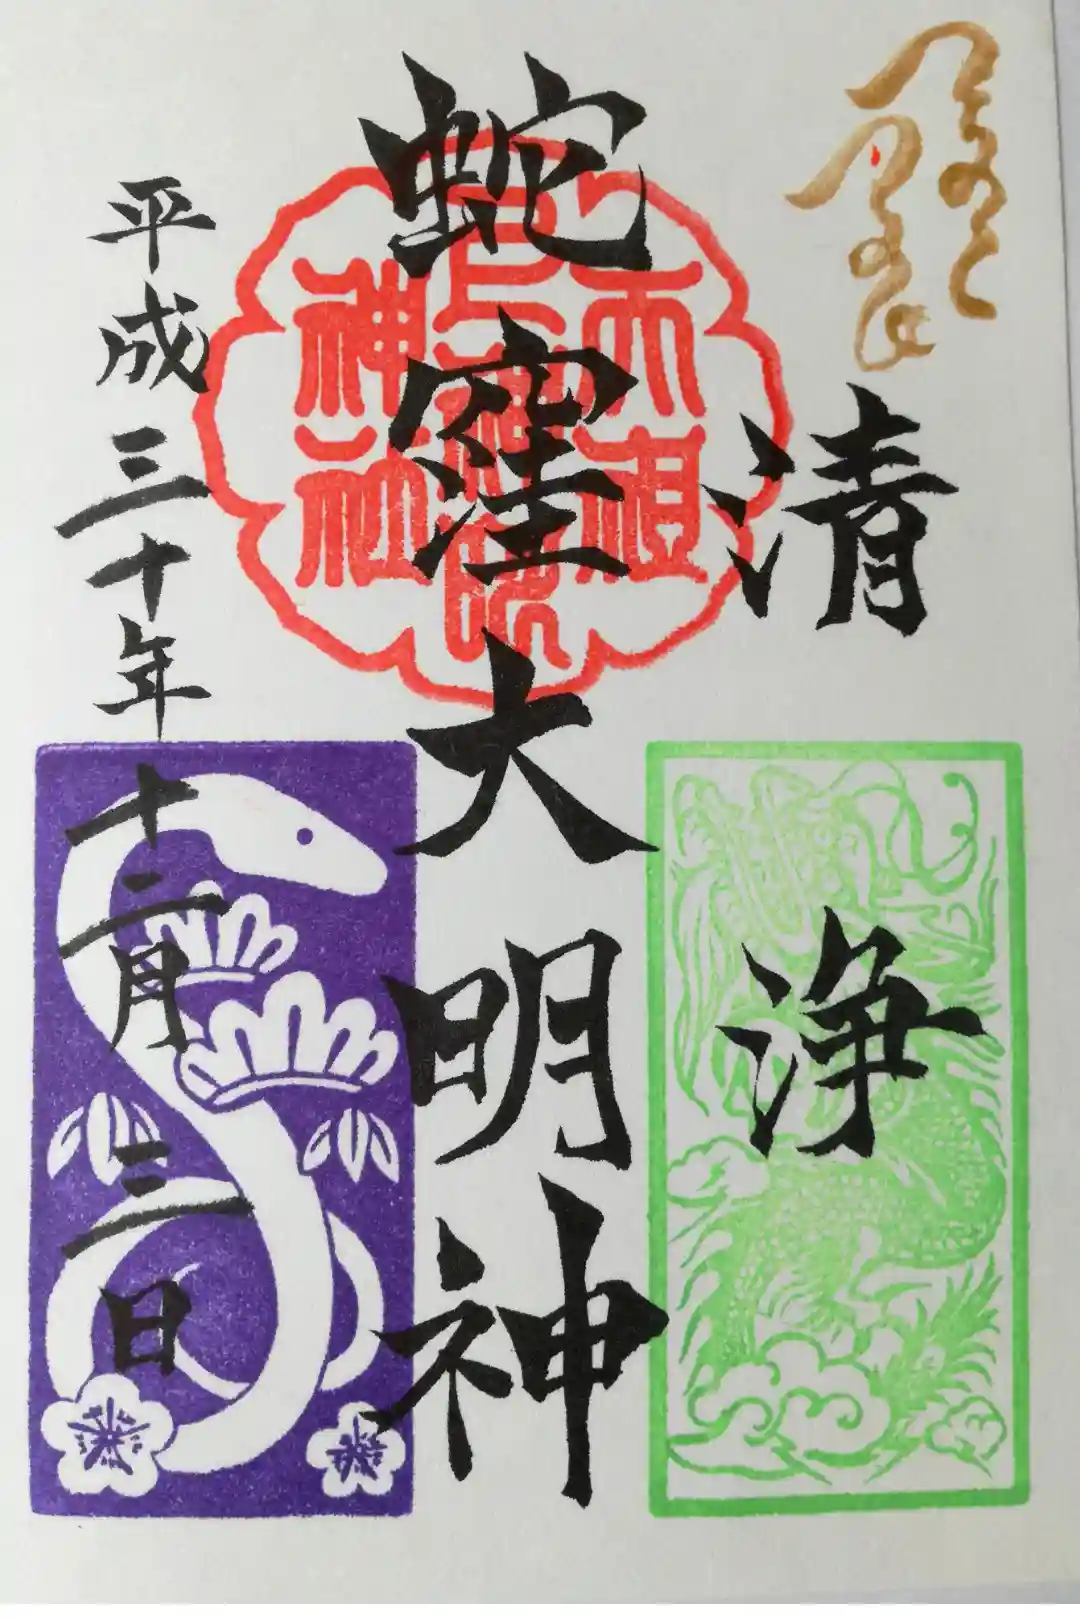 清浄
蛇窪大明神
天祖
上神明
神社
平成三十年十二月三日